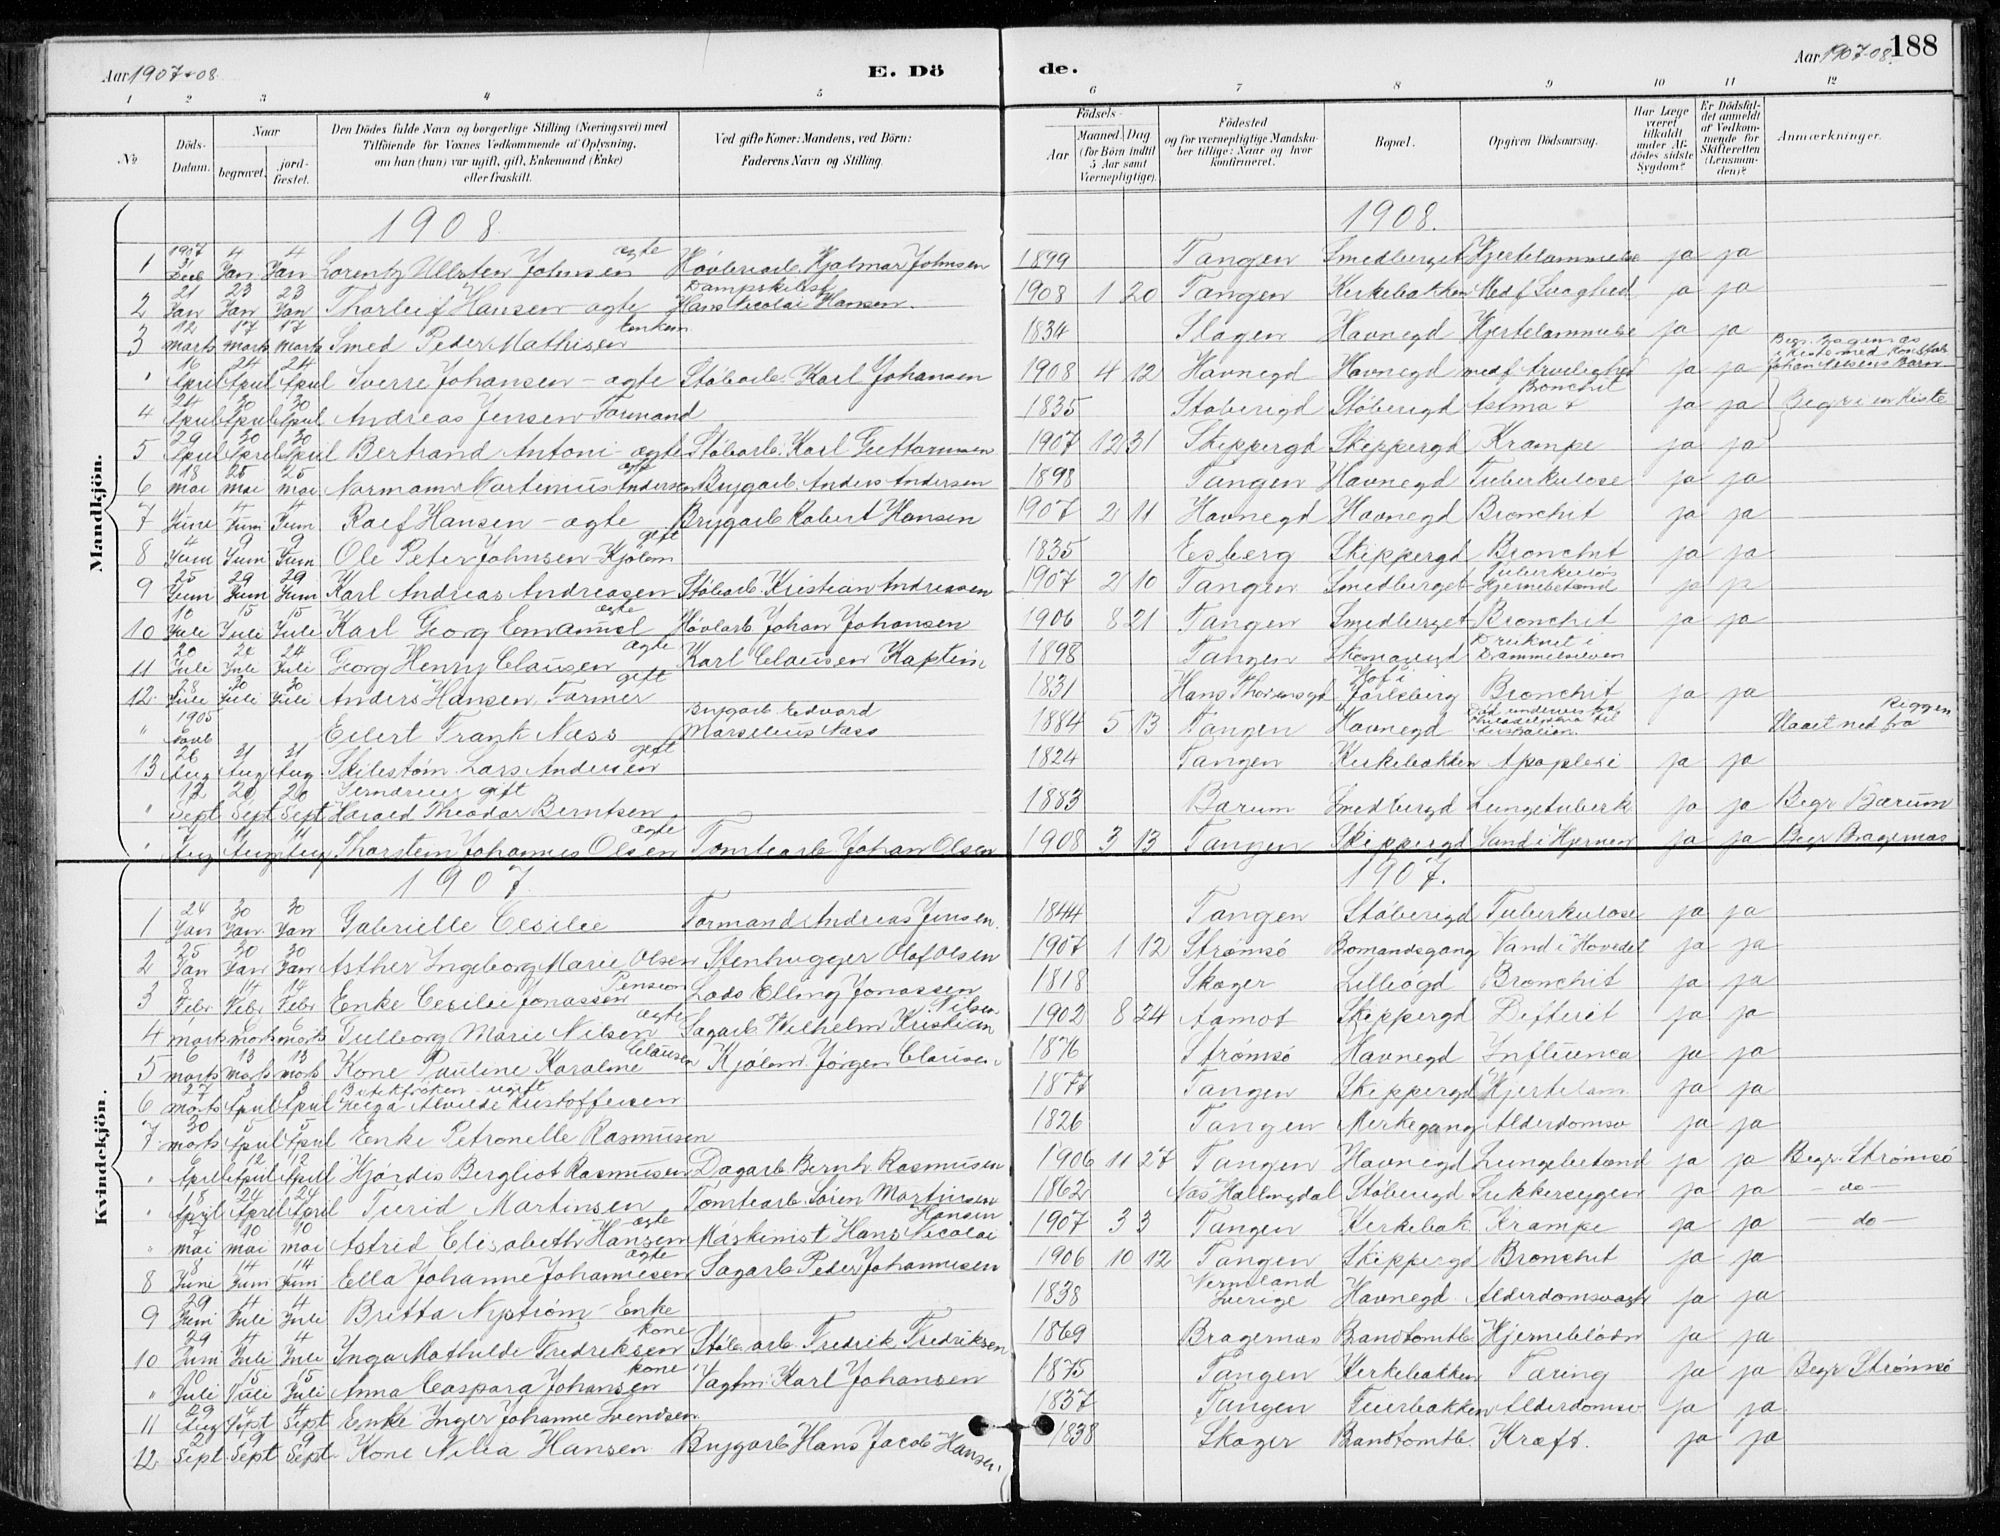 Aar 1907-08.
E. Dö
de.
Aar 1907-08.
188
1 2 3 4 5 6 7 8 9 10 11 12
No
Döds-Datum.
Naar
begravet.
jord-fæstet.
Den Dödes fulde Navn og borgerlige Stilling (Næringsvei) med
Tilföiende for Voxnes Vedkommende af Oplysning,
om han (hun) var ugift, gift, Enkemand (Enke)
eller fraskilt.
Ved gifte Koner: Mandens, ved Börn:
Faderens Navn og Stilling.
Födsels-
Aar
Maaned. Dag
(for Börn indtil 5 Aar samt Værnepligtige).
Födested
og for værnepligtige Mandskaber tillige: Naar og hvor konfirmeret.
Bopæl.
Opgiven Dödsaarsag.
Har Læge været tilkaldt under Afdödes sidste Sygdom?
Er Dödsfaldet anmeldt af Vedkommende for Skifteretten (Lensmanden)?
Anmærkninger.
Mandkjön.
1908.
1908.
1 1907 31 Dec 4 Jan 4 Jan Lorentz Ullsten Johnsen ægte Hövleriarb. Hjalmar Johnsen 1899 Tangen Smedberget Hjertelammelse ja ja
2 21 Jan 23 Jan 23 Jan Thorleif Hansen - ægte Hans Nicolai Hansen. 1908 1 20 Tangen Kirkebakken Medf Svaghed ja ja
3 12 marts 17 marts 17 marts Smed Peder Mathisen Enkem 1834 Slagen Havnegd Hjertelammelse ja ja
" 16 April 24 April 24 April Sverre Johansen - ægte Stöbarb. Karl Johansen 1908 4 12 Havnegd Havnegd ja ja
4 24 April 30 April 30 April Andreas Jensen Formand 1835 Stöberigd Stöberigd Astma & Bronchit ja ja Begr i en Kiste
5 29 April 30 April 30 April Bertrand Antoni - ægte Stöbarb. Karl 1907 12 31 Skippergd Skippergd Krampe ja ja
6 18 mai 25 mai 25 mai Martinius Andersen ægte Brygarb. Anders Andersen 1898 Tangen Havnegd Tuberkulose ja ja
7 June 4 Juni 4 Juni Hansen - ægte Brygarb Robert Hansen 1907 2 11 Havnegd Havnegd Bronchit ja ja
8 4 Juni 9 Juni 9 Juni Ole Peter Johnsen Kjölm gift 1835 Skippergd Bronchit ja ja
9 25 Juni 29 Juni 29 Juni Karl Andreas Andreasen Stöbarb. Kristian Andreasen 1907 2 10 Tangen Smedberget Tuberkulös Hjernebetænd ja ja
10 10 Juli 15 Juli 15 Juli Karl Georg Emanuel ægte Hövlarb Johan Johansen 1906 8 21 Tangen Smedberget Bronchit ja ja
11 20 Juli 24 Juli 24 Juli Georg Henry Clausen ægte Karl Clausen Kaptein 1898 Tangen Druknet i Drammelselven
12 28 Juli 30 Juli 30 Juli Anders Hansen, Farmer gift 1831 Hof i Jarlsberg Bronchit ja ja
" 1905 Eilert Frank Næss Brygarb Edvard Marselius Næss 1884 5 13 Tangen Havnegd Död underveis fra Philadelphia til Australien. Slaaet ned fra Riggen
13 26 Aug 31 Aug 31 Aug Skibstöm. Lars Andersen gift 1824 Tangen Kirkebakken Apoplexi ja ja
" 12 Sept 20 Sept 20 Sept Harald Theodor Berntsen gift 1883 Bærum Smedbergd Lungetuberk ja ja Begr Bærum
" 7 Aug 11 Aug 11 Aug Thorstein Johannes Olsen ægte Tomtearb Johan Olsen 1908 3 13 Tangen Skippergd Vand i Hjernen ja ja Begr Bragernæs
Kvindekjön.
1907.
1907.
1 24 Jan 30 Jan 30 Jan Gabrielle Cesilie Formand Andreas Jensen. 1844 Tangen Stöberigd Tuberkulose ja ja
2 25 Jan 30 Jan 30 Jan Asther Ingeborg Marie Olsen Stenhugger Olof Olsen 1907 1 12 Strömsö Bomandsgang Vand i Hovedet ja ja
3 8 Febr 14 Febr 14 Febr Enke Cesilie Jonassen Pension Lods Elling Jonassen 1818 Skoger Lilleögd Bronchit ja ja
4 marts 6 marts 6 marts Gulborg Marie Nilsen ægte Sagarb Wilhelm Kristian Nilsen 1902 8 24 Aamot Skippergd Difterit ja ja
5 6 marts 13 marts 13 marts Kone Pauline Karoline Clausen Kjölm. Jörgen Clausen 1876 Strömsö Havnegd Influenca ja ja
6 27 marts 3 April 3 April Butikfröken - ugift Helga Alvilde Kristoffersen 1877 Tangen Skippergd Hjertelam ja ja
7 30 marts 5 April 5 April Enke Petronelle Rasmusen 1826 Tangen Merkegang Alderdomsv ja ja
" 6 April 12 April 12 April Hjördis Bergliot Rasmusen Dagarb. Bernh Rasmusen 1906 11 27 Tangen Havnegd Lungebetænd ja ja Begr. Strömsö
" 18 April 24 April 24 April Turid Martinsen Tomtearb Sören Martinsen 1862 Næs Hallingdal Stöberigd Sukkersygen ja ja - do -
" 7 mai 10 mai 10 mai Astrid Elisabeth Hansen ægte Maskinist Hans Nicolai Hansen 1907 3 3 Tangen Kirkebak Krampe ja ja - do -
8 8 Juni 14 Juni 14 Juni Ella Johanne Johannesen ægte Sagarb Peder Johannesen 1906 10 12 Tangen Skippergd Bronchit ja ja
9 29 Juni 4 Juli 4 Juli Britta Nyström - Enke 1838 Vermeland Sverige Havnegd Alderdomsvagh ja ja
10 29 Juni 4 Juli 4 Juli Inga Mathilde Fredriksen kone Stöb. arb Fredrik Fredriksen 1869 Bragernæs Brandtomtb. Hjerneblödn ja ja
" 10 Juli 15 Juli 15 Juli Anna Caspara Johansen kone Vagtm. Karl Johansen 1875 Tangen Kirkebakken Tæring ja ja Begr Strömsö
11 29 Aug 4 Sept 4 Sept Enke Inger Johanne Svendsen 1837 Tangen Tuerbakken Alderdomsv ja ja
12 2 Sept 9 Sept 9 Sept Kone Nilia Hansen Brygarb Hans Jacob Hansen. 1838 Skoger Brandtomtb. Kræft. ja ja